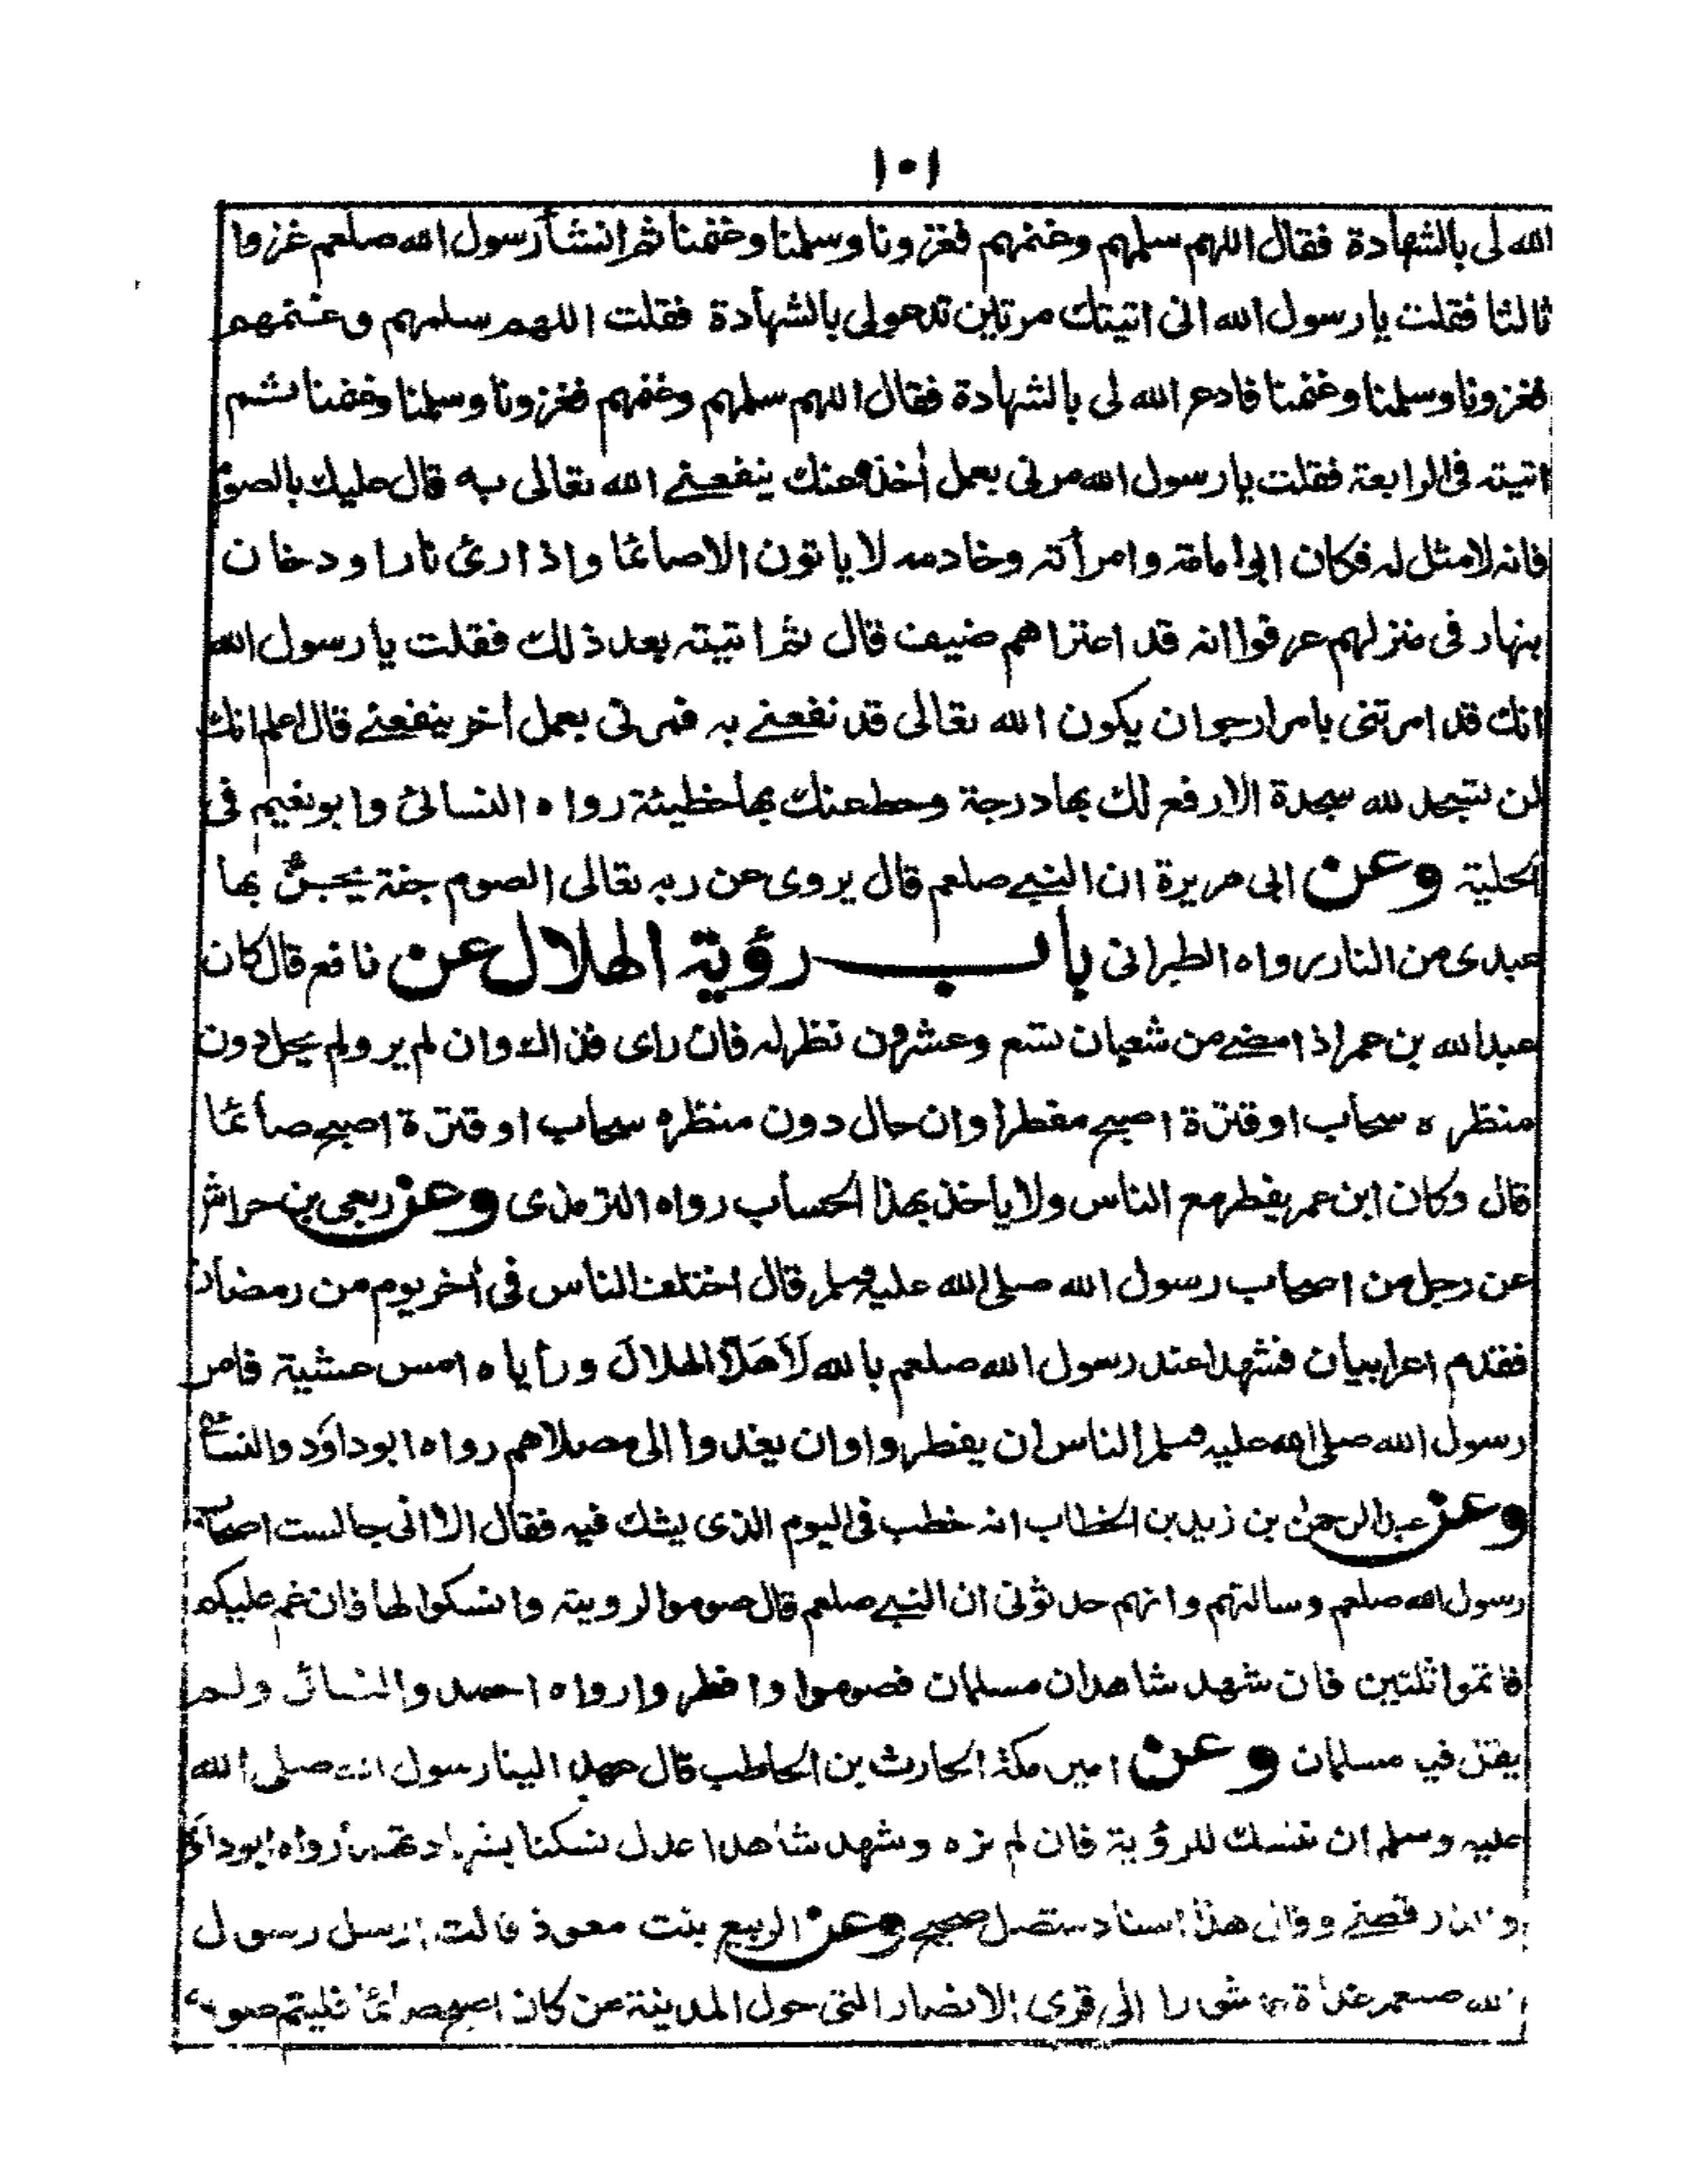 ١٠١
الله لى بالشهادة فقال اللهم سلمهم وغنمهم فغزونا وسلمنا وغنمنا ثم انشأ رسول الله صلعم غزوا
ثالثا فقلت يا رسول الله انى اتيتك مرتين تدعولى بالشهادة فقلت اللهم سلمهم وغنمهم
فغزونا وسلمنا وغنمنا فادع الله لى بالشهادة فقال اللهم سلمهم وغنمهم فغزونا وسلمنا وغنمنا ثم
اتيته فى الرابعة فقلت يا رسول الله مرنى بعمل أخذه عنك ينفعنے الله تعالى به قال عليك بالصوم
فانه لا مثل له فكان ابوا مامة وامرأته وخادمه لا ياتون الاصائما واذا ارئ نارا ودخان
بنهار فى منزلهم عرفوا انه قد اعتراهم ضيف قال ثم اتيته بعد ذلك فقلت يا رسول الله
انك قد امرتنى بامر ارجوان يكون الله تعالى قد نفعنے به فمرنى بعمل أخر ينفعنے قال اعلم انك
لن تسجد لله سجدة الا رفع لك بها درجة وحط عنك بها خطيئة رواه النسائى وابو نعيم فى
الحلية وعن ابى هريرة ان النبے صلعم قال يروى عن ربه تعالى الصوم جنة يجن بها
عبدى من النار رواه الطبرانى باب رؤية الهلال عن نافع قال كان
عبد الله بن عمر اذا مضے من شعبان تسع وعشرون نظر له فان راى فذاك وان لم ير ولم يحل دون
منظره سحاب او قترة اصبح مفطرا وان حال دون منظره سحاب او قترة اصبح صائما
قال وكان ابن عمر يفطر مع الناس ولا يأخذ بهذا الحساب رواه الترمذى وعن ربعى بن حراش
عن رجل من اصحاب رسول الله صلى الله عليه وسلم قال اختلف الناس فى أخر يوم من رمضان
فقدم اعرابيان فشهدا عند رسول الله صلعم بالله لأهلا الهلال ورأياه امس عشية فامر
رسول الله صلى الله عليه وسلم الناس ان يفطروا وان يغدوا الى مصلاهم رواه ابوداود والنسائى
وعن عبد الرحمن بن زيد بن الخطاب انه خطب فى اليوم الذى يشك فيه فقال الا انى جالست اصحاب
رسول الله صلعم وسالتهم وانهم حدثونى ان النبے صلعم قال صوموا لرويته وانسكوا لها فان غم عليكم
فاتموا ثلثين فان شهد شاهدان مسلمان فصوموا وافطروا رواه احمد والنسائى ولم
يقل فيه مسلمان وعن امير مكة الحارث بن الحاطب قال عهد الينا رسول الله صلى الله
عليه وسلم ان ننسك للرؤية فان لم نره وشهد شاهدا عدل نسكنا بشهادتهما رواه ابوداود
والدارقطنے وقال هذا اسناد متصل صحيح وعن الربيع بنت معوذ قالت ارسل رسول
الله صلعم غداة عاشورا الى قرى الانصار التى حول المدينة من كان اصبح صائما فليتم صومه